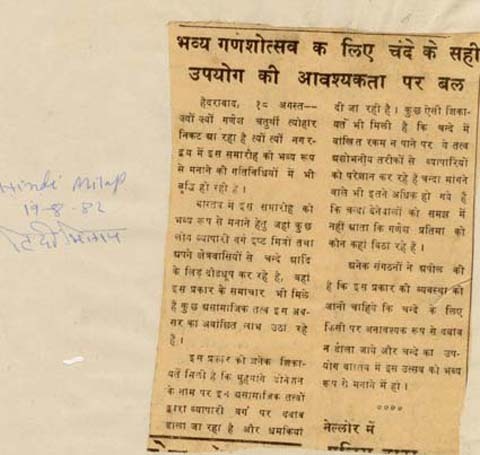 भव्य गणशोत्सव क लिए चंदे के सही
उपयोग की आवश्यकता पर बल
हैदराबाद, १८ अगस्त—
ज्यों ज्यों गणेश चतुर्थी त्योहार
निकट आ रहा है त्यों त्यों नगर-
द्वय में इस समारोह को भव्य रूप
से मनाने की गतिविधियों में भी
वृद्धि हो रही है ।
वास्तव में इस समारोह को
भव्य रूप से मनाने हेतु जहां कुछ
लोग व्यापारी वर्ग इष्ट मित्रों तथा
अपने क्षेत्रवासियों से चन्दे आदि
के लिए दौडधूप कर रहे है, वहां
इस प्रकार के समाचार भी मिले
है कुछ असामाजिक तत्व इस अव-
सर का अवांछित लाभ उठा रहे
है ।
इस प्रकार की अनेक शिका-
यतें मिली है कि मुहमांगे डोनेशन
के नाम पर इन असामाजिक तत्वों
द्वारा व्यापारी वर्ग पर दबाव
डाला जा रहा है और धमकियां
दी जा रही है । कुछ ऐसी शिका-
यतें भी मिली है कि चन्दे में
वांछित रकम न पाने पर ये तत्व
अशोभनीय तरीकों से व्यापारियों
को परेशान कर रहे हैं चन्दा मांगने
वाले भी इतने अधिक हो गये हैं
कि चन्दा देनेवालों को समझ में
नहीं आता कि गणेश प्रतिमा को
कौन कहां बिठा रहे हैं ।
अनेक संगठनों ने अपील की
है कि इस प्रकार की व्यवस्था की
जानी चाहिये कि चन्दे के लिए
किसी पर अनावश्यक रूप से दबाव
न डाला जाये और चन्दे का उप-
योग वास्तव में इस उत्सव को भव्य
रूप से मनाने में हो ।
००००
नेल्लोर में
Hindi Milap
19-8-82
हिंदी मिलाप